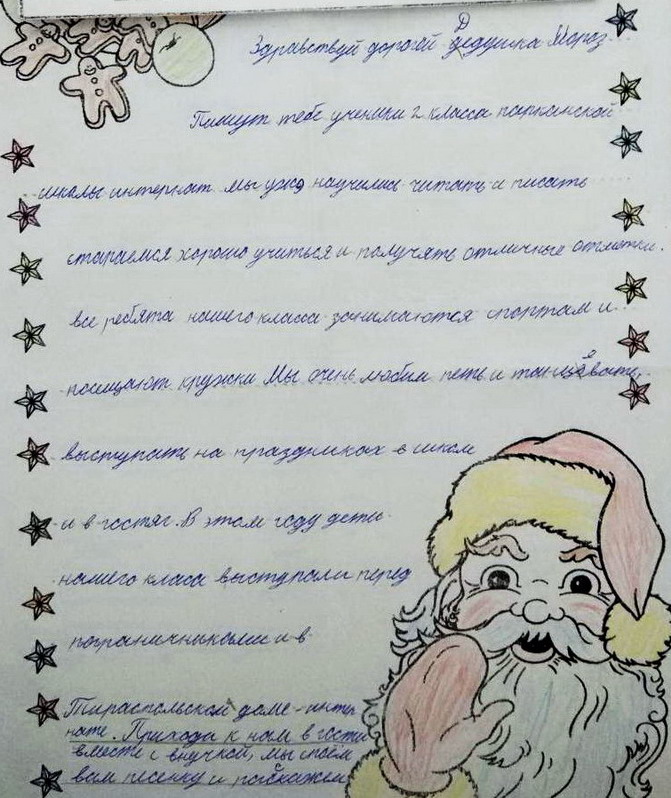 Здравствуй дорогой Дедушка Мороз.
Пишут тебе ученики 2 класса парканской
школы интернат мы уже научились читать и писать
стараемся хорошо учиться и получять отличные отметки.
все ребята нашего класса занимаются спортам и
посещают кружки Мы очень любим петь и танцевать,
выступать на праздниках в школе
и в гостях. В этом году дети
нашего класа выступали перед
пограничниками и в
Тираспольском доме-интер
нате. Приходи к нам в гости
вместе с внучкой, мы споём
вам песенку и расскажем